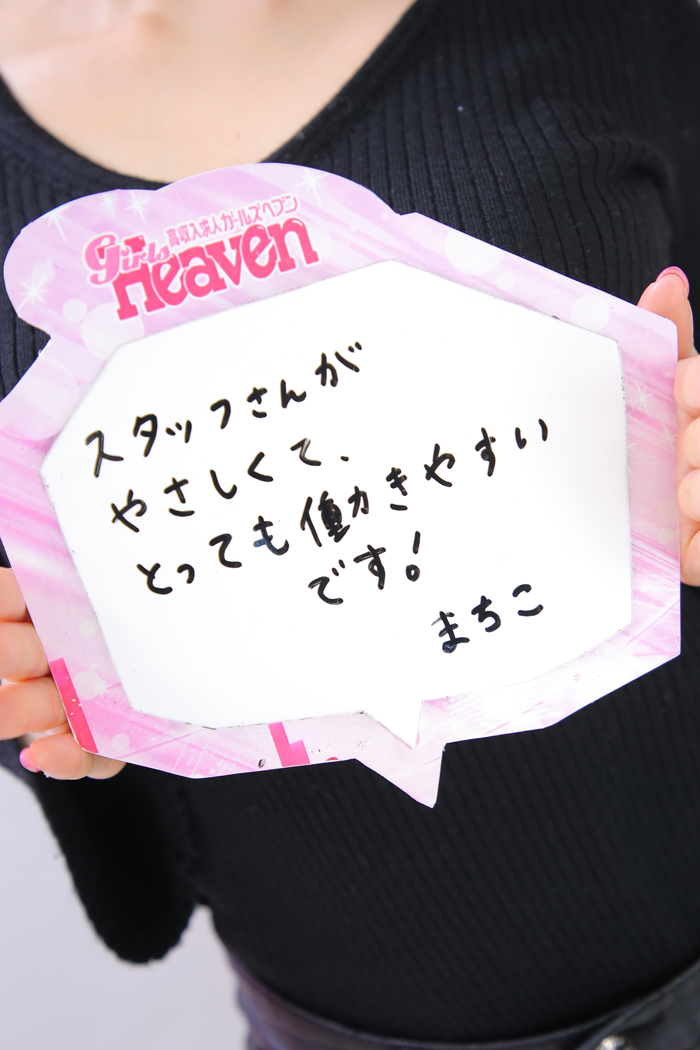 高収入求人ガールズヘブン
Girls
Heaven
スタッフさんが
やさしくて、
とっても働きやすい
です!
まちこ